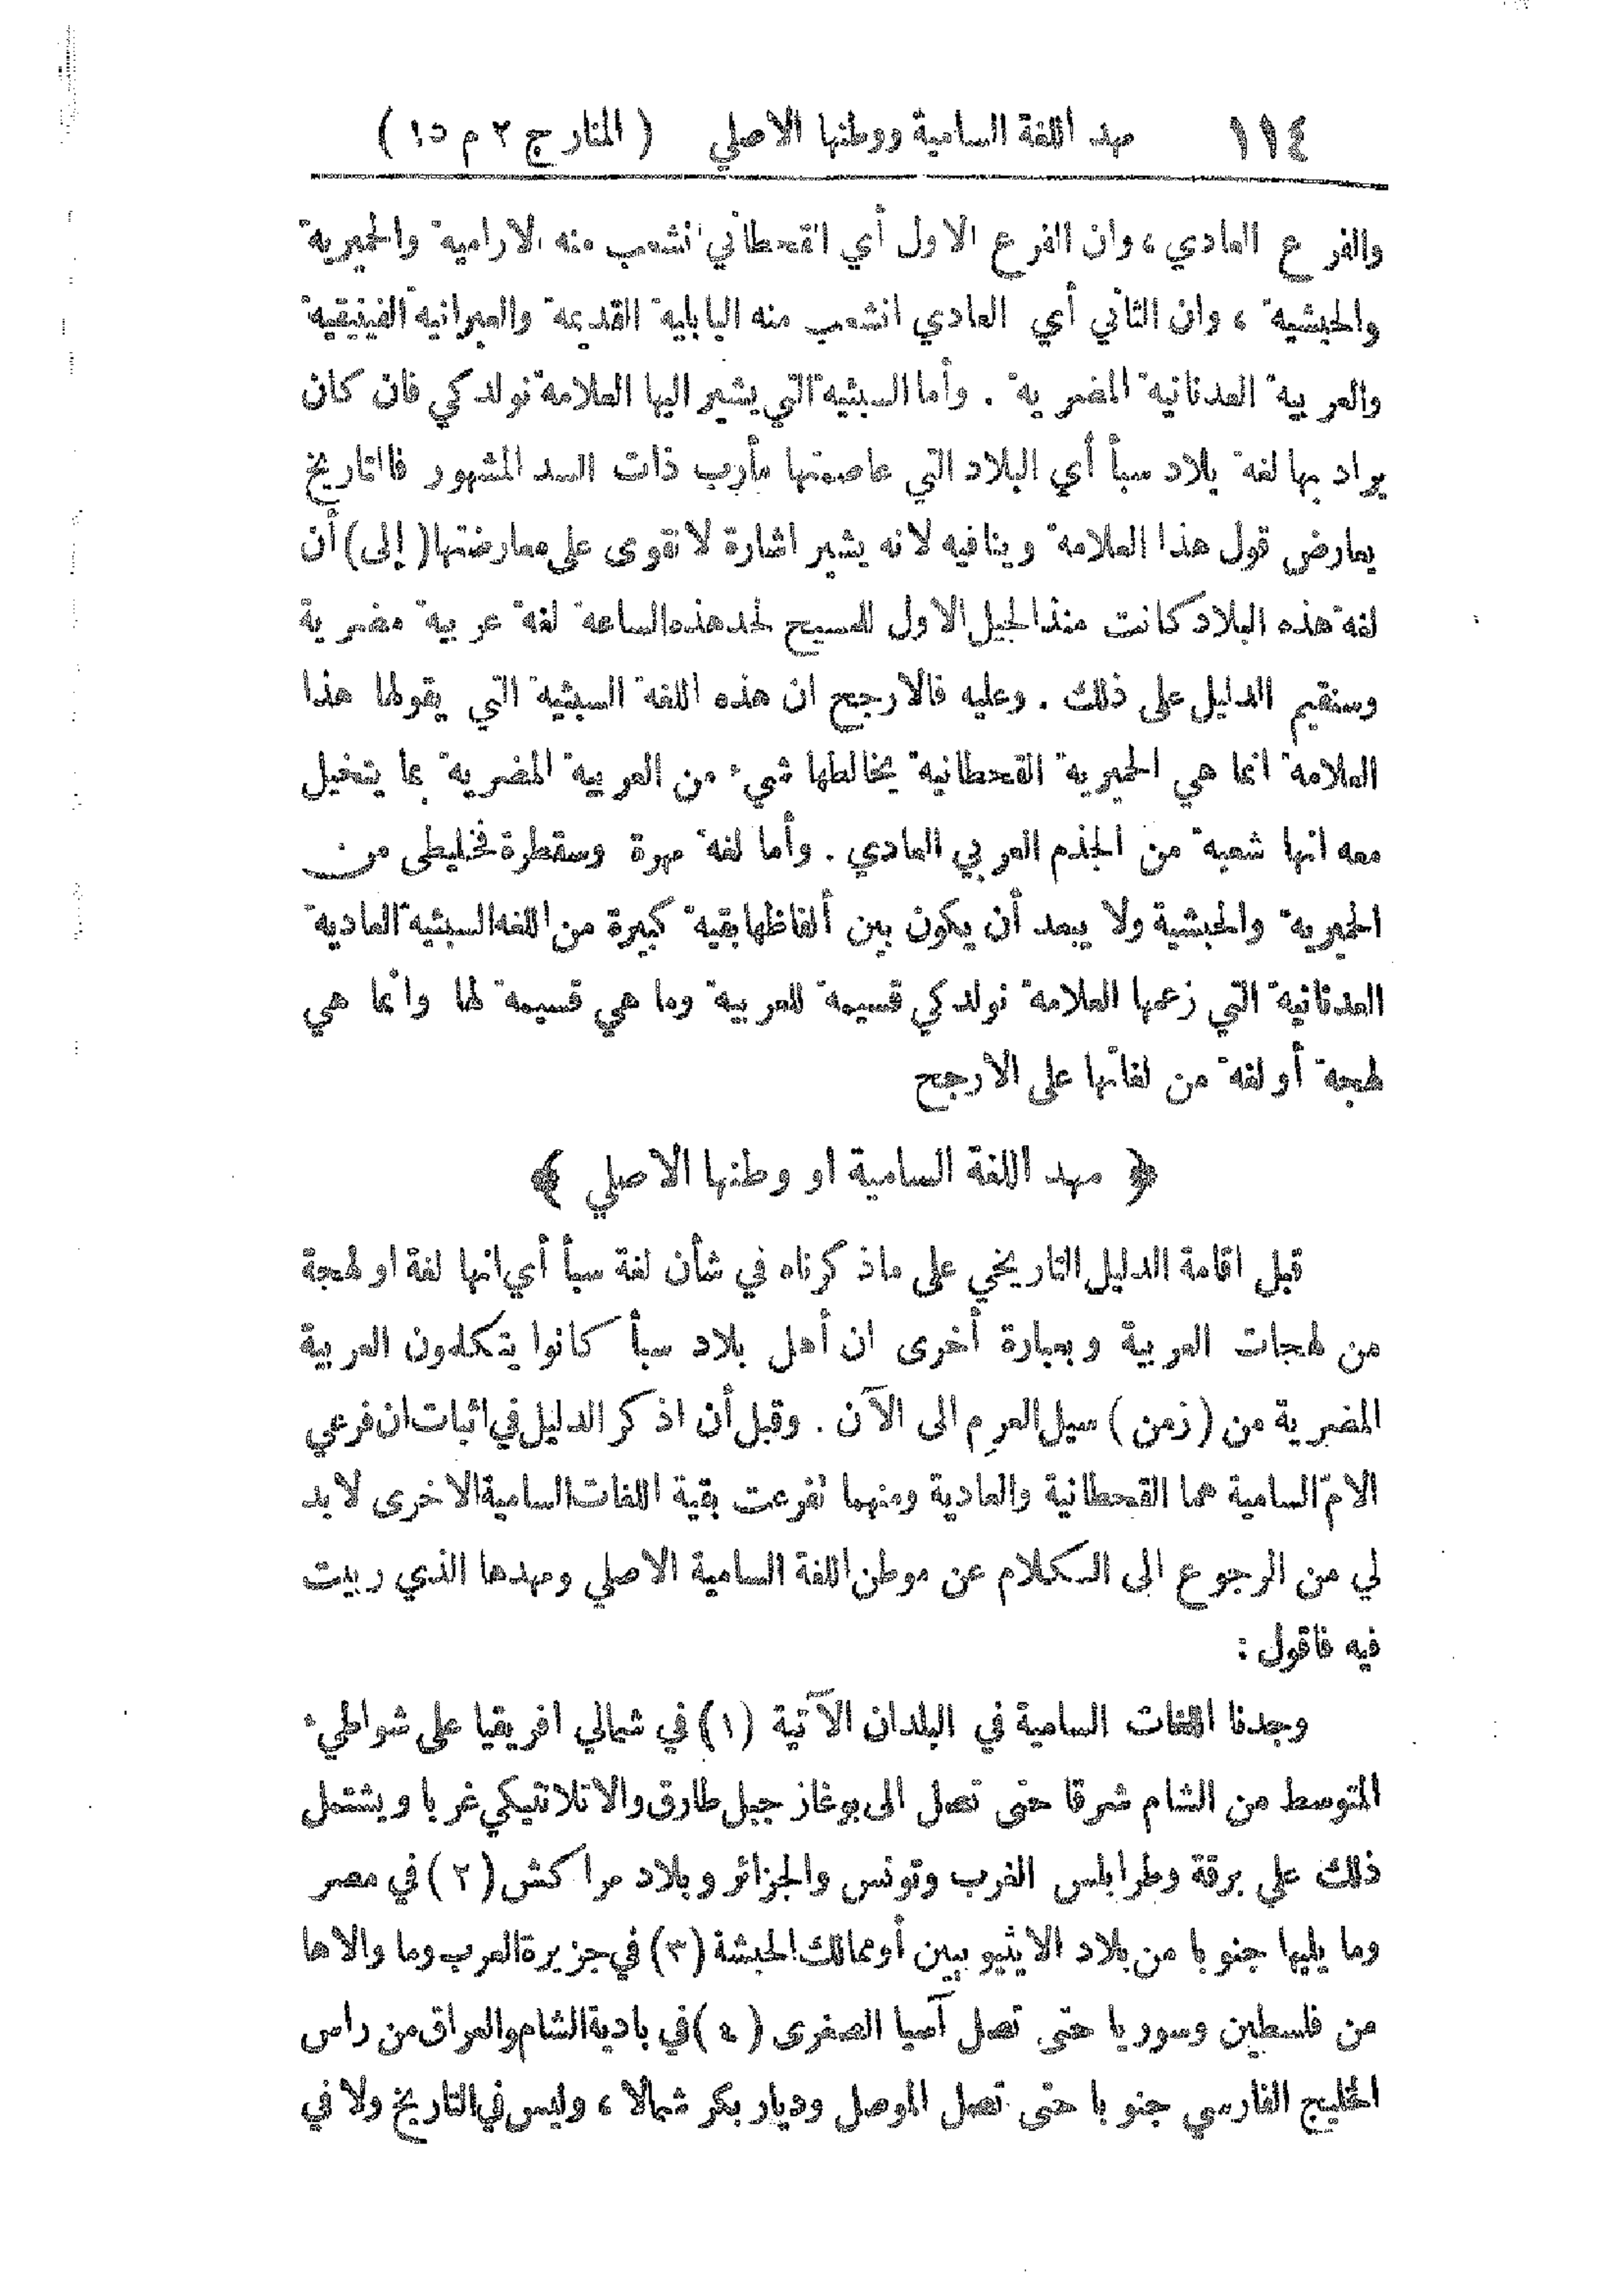 ١١٤ مهد اللغة السامية ووطنها الاصلي ( المنار ج ٢ م ١٥ )
والفرع العادي، وان الفرع الاول أي القحطاني انشعب منه الارامية والحميرية
والحبشية ، وان الثاني أي العادي انشعب منه البابلية القديمة والعبرانية الفينيقية
والعربية العدنانية المضرية . وأما السبئية التي يشير اليها العلامة نولدكي فان كان
يراد بها لغة بلاد سبأ أي البلاد التي عاصمتها مأرب ذات السد المشهور فالتاريخ
يعارض قول هذا العلامة وينافيه لانه يشير اشارة لا نقوى على معارضتها (إلى) أن
لغة هذه البلاد كانت منذ الجيل الاول للمسيح لحد هذه الساعة لغة عربية مضرية
وسنقيم الدليل على ذلك . وعليه فالارجح ان هذه اللغة السبئية التي يقولها هذا
العلامة انما هي الحميرية القحطانية يخالطها شيء من العربية المضرية بما يتخيل
معه انها شعبة من الجذم العربي العادي . وأما لغة مهرة وسقطرة فخليطى من
الحميرية والحبشية ولا يبعد أن يكون بين ألفاظها بقية كبيرة من اللغة السبئية العادية
العدنانية التي زعمها العلامة نولدكي قسيمة للعربية وما هي قسيمة لها وانما هي
لهجة أو لغة من لغاتها على الارجح
﴿ مهد اللغة السامية او وطنها الاصلي ﴾
قبل اقامة الدليل التاريخي على ماذكرناه في شأن لغة سبأ أي انها لغة او لهجة
من لهجات العربية وبعبارة أخرى ان أهل بلاد سبأ كانوا يتكلمون العربية
المضرية من (زمن) سيل العرم الى الآن . وقبل أن اذكر الدليل في اثبات ان فرعي
الام السامية هما القحطانية والعادية ومنهما تفرعت بقية اللغات السامية الاخرى لا بد
لي من الرجوع الى الكلام عن موطن اللغة السامية الاصلي ومهدها الذي ربيت
فيه فاقول :
وجدنا اللغات السامية في البلدان الآتية (١) في شمالي افريقيا على شواطئ
المتوسط من الشام شرقا حتى تصل الى بوغاز جبل طارق والاتلانتيكي غربا ويشتمل
ذلك على برقة وطرابلس الغرب وتونس والجزائر وبلاد مراكش (٢) في مصر
وما يليها جنوبا من بلاد الايثيوبيين أو ممالك الحبشة (٣) في جزيرة العرب وما والاها
من فلسطين وسوريا حتى تصل آسيا الصغرى (٤) في بادية الشام والعراق من راس
الخليج الفارسي جنوبا حتى تصل الموصل وديار بكر شمالا ، وليس في التاريخ ولا في